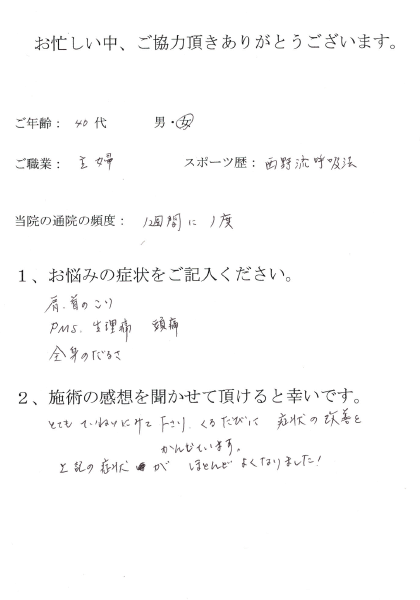 お忙しい中、ご協力頂きありがとうございます。
ご年齢： 40 代　男・女
ご職業： 主婦　スポーツ歴： 西野流呼吸法
当院の通院の頻度： 1週間に1度
１、お悩みの症状をご記入ください。
肩、首のこり
PMS、生理痛　頭痛
全身のだるさ
２、施術の感想を聞かせて頂けると幸いです。
とてもていねいにみて下さり、くるたびに 症状の改善を
かんじています。
上記の症状が ほとんど よくなりました！